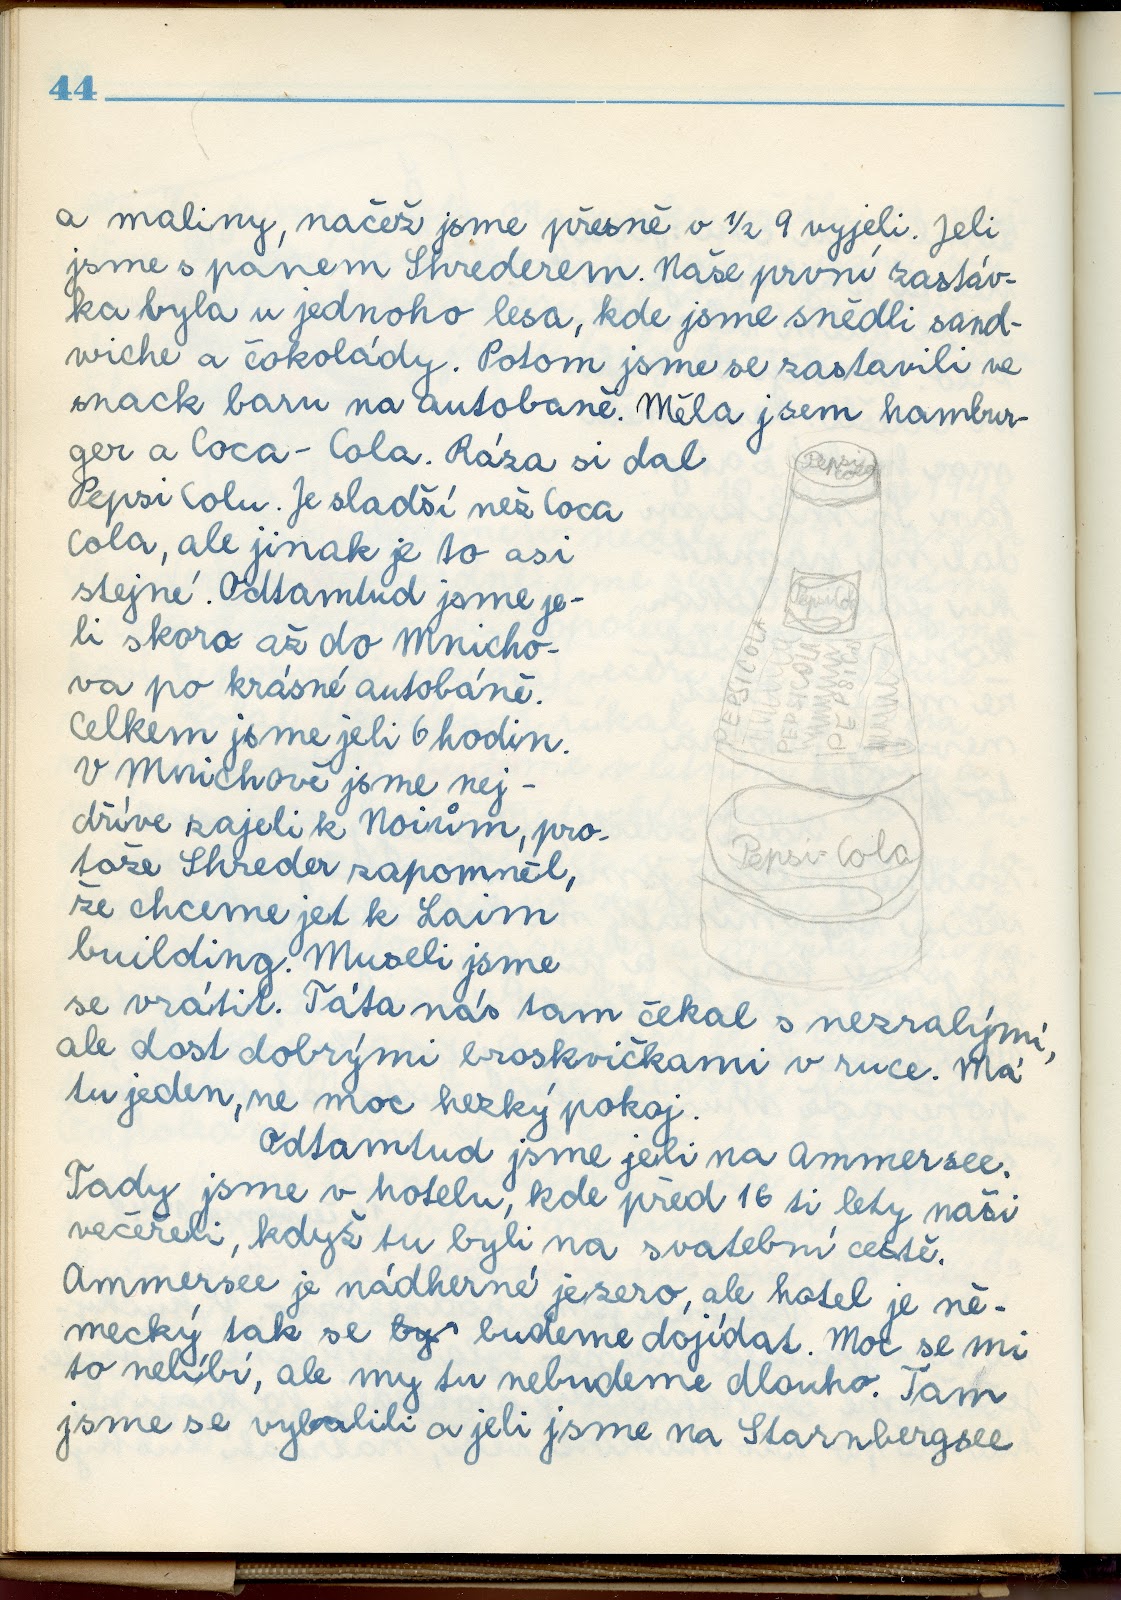 44
a maliny, načež jsme přesně v 1/2 9 vyjeli. Jeli
jsme s panem Shrederem. Naše první zastáv-
ka byla u jednoho lesa, kde jsme snědli sand-
wiche a čokolády. Potom jsme se zastavili ve
snack baru na autobaně. Měla jsem hambur-
ger a Coca - Cola. Ráza si dal
Pepsi Colu. Je sladší než Coca
Cola, ale jinak je to asi
stejné. Odtamtud jsme je-
li skoro až do Mnicho-
va po krásné autobáně.
Celkem jsme jeli 6 hodin.
V Mnichově jsme nej-
dříve zajeli k Noirům, pro-
tože Shreder zapomněl,
že chceme jet k Laim
building. Museli jsme
se vrátit. Táta nás tam čekal s nezralými,
ale dost dobrými broskvičkami v ruce. Má
tu jeden, ne moc hezký pokoj.
Odtamtud jsme jeli na Ammersee.
Tady jsme v hotelu, kde před 16 ti lety naši
večeřeli, když tu byli na svatební cestě.
Ammersee je nádherné jezero, ale hotel je ně-
mecký tak se budeme dojídat. Moc se mi
to nelíbí, ale my tu nebudeme dlouho. Tam
jsme se vybalili a jeli jsme na Starnbergsee
Pepsi
Cola
Pepsi Cola
PEPSICOLA
PEPSICOLA
PEPSICO
Pepsi-Cola